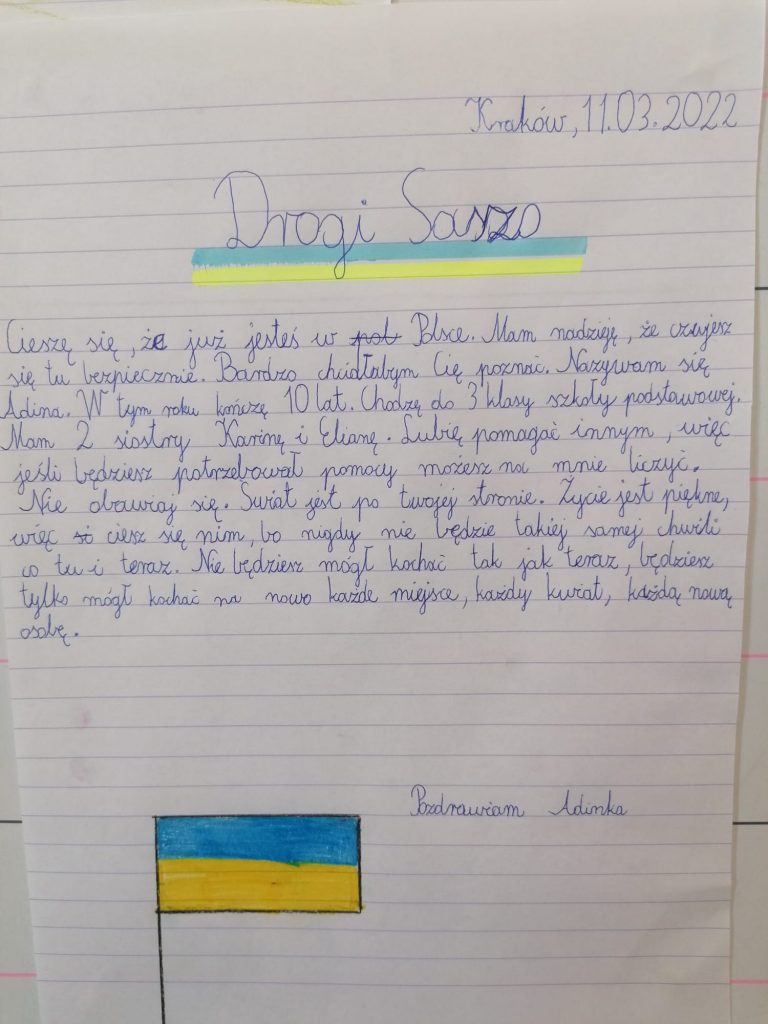 Kraków, 11.03.2022
Drogi Saszo
Cieszę się, że już jesteś w pol Polsce. Mam nadzieję, że czujesz
się tu bezpiecznie. Bardzo chciałabym Cię poznać. Nazywam się
Adina. W tym roku kończę 10 lat. Chodzę do 3 klasy szkoły podstawowej.
Mam 2 siostry Karinę i Elianę. Lubię pomagać innym, więc
jeśli będziesz potrzebował pomocy możesz na mnie liczyć.
Nie obawiaj się. Świat jest po twojej stronie. Życie jest piękne,
więc ciesz się nim, bo nigdy nie będzie takiej samej chwili
co tu i teraz. Nie będziesz mógł kochać tak jak teraz, będziesz
tylko mógł kochać na nowo każde miejsce, każdy kwiat, każdą nową
osobę.
Pozdrawiam Adinka